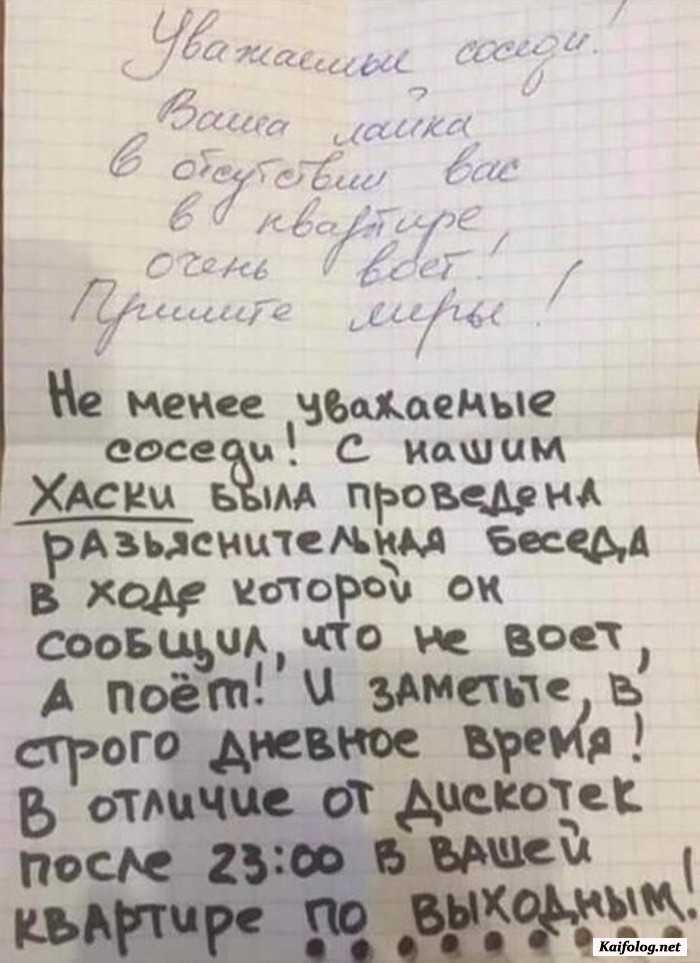 Уважаемые соседи!
Ваша лайка
в отсутствии вас
в квартире
очень воет!
Примите меры!
Не менее уважаемые
соседи! С нашим
ХАСКИ была проведена
разьяснительная беседа
в ходе которой он
сообщил, что не воет,
а поёт! И заметьте, в
строго дневное время!
В отличие от дискотек
после 23:00 в вашей
квартире по выходным!
Kaifolog.net